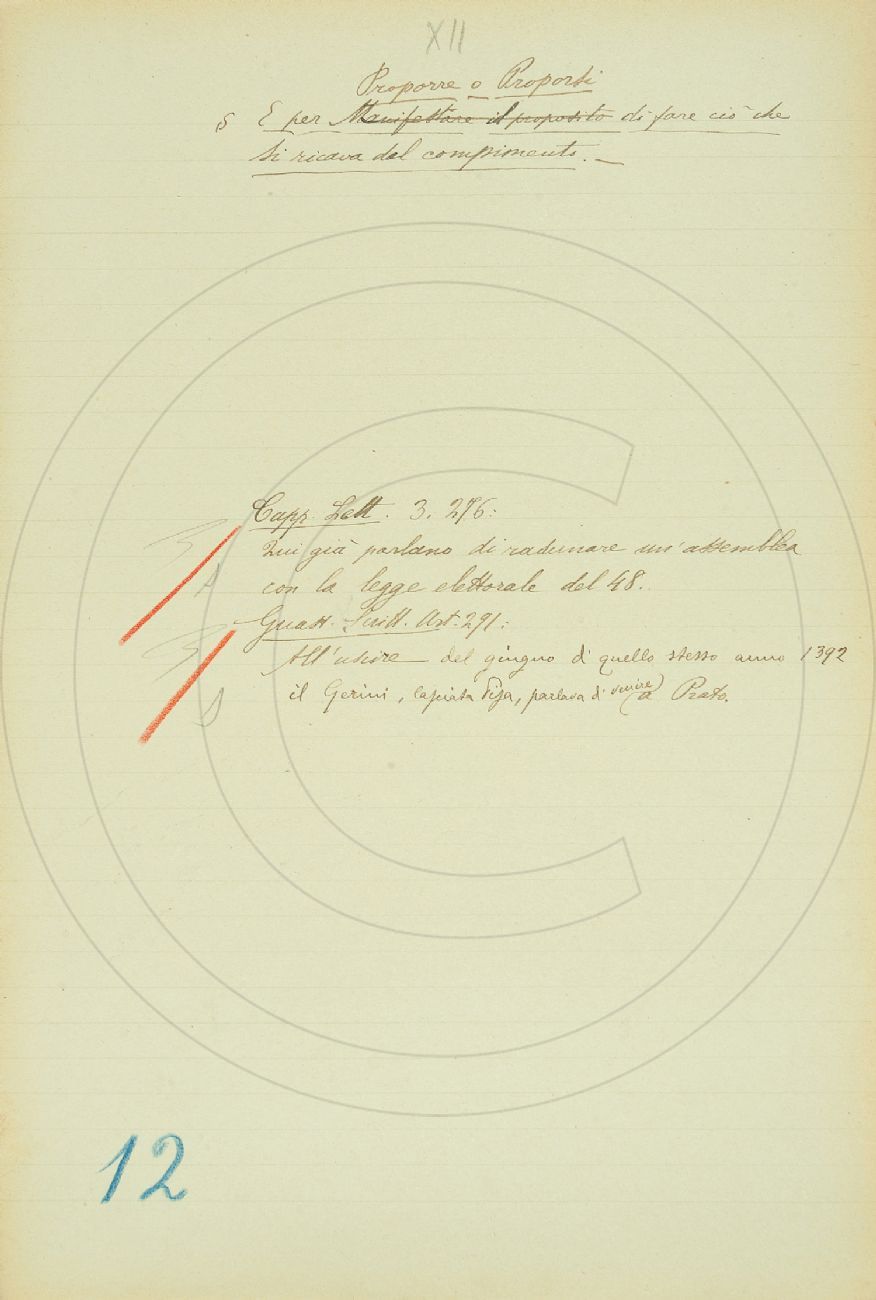 XII
Proporre o Proporsi
§ E per Manifestare il proposito di fare ciò che
si ricava dal compimento. _
Capp. Lett. 3. 276:
Qui già parlano di radunare un'assemblea
con la legge elettorale del 48.
Guast. Scritt. Art. 291:
All'uscire del giugno di quello stesso anno 1392
il Gerini, lasciata Pisa, parlava di venire a Prato.
12